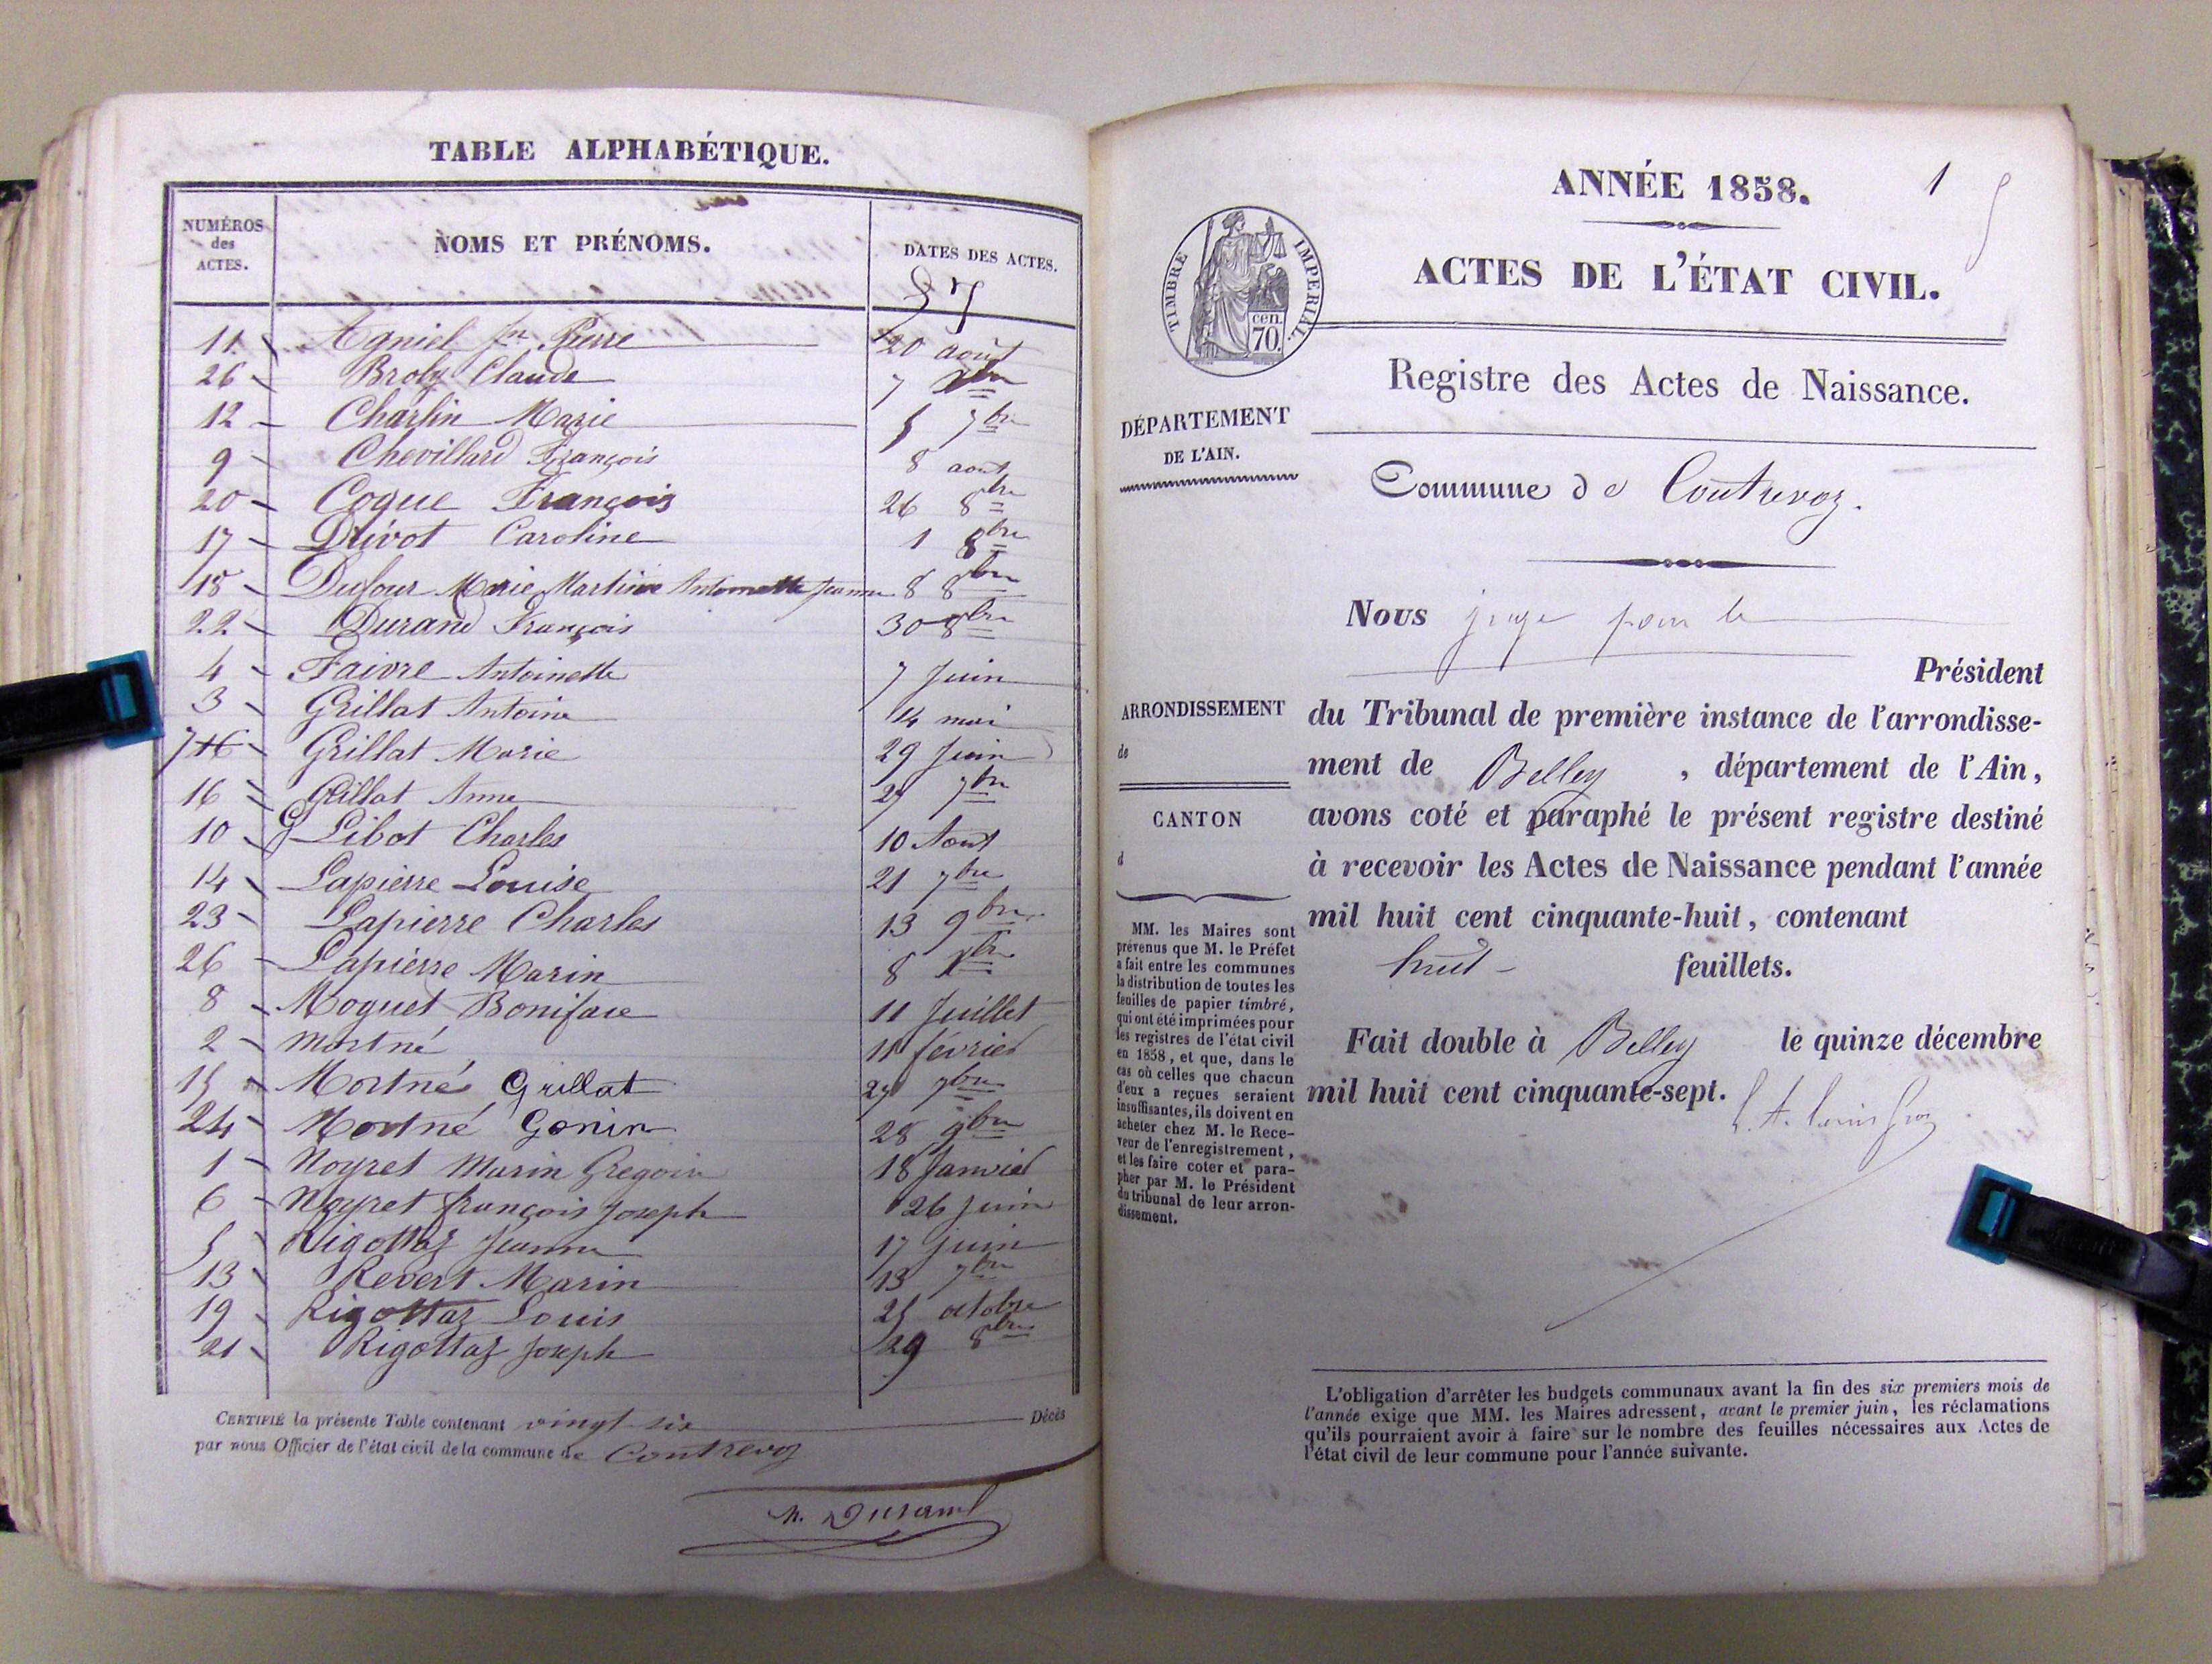 TABLE ALPHABÉTIQUE.
NUMÉROS des ACTES.
NOMS ET PRÉNOMS.
DATES DES ACTES.
57
11 Agniel Jn Pierre 20 août
26 Broly Claude 7 Xbre
12 Charlin Marie 5 7bre
9 Chevillard François 8 aout
20 Coque François 26 8bre
17 Drivot Caroline 1 8bre
18 Dufour Marie Martine Antoinette Jeanne 8 8bre
22 Durand François 30 8bre
4 Faivre Antoinette 7 Juin
3 Grillat Antoine 14 mai
7 Grillat Marie 29 Juin
16 Grillat Anne 27 7bre
10 Libot Charles 10 Aout
14 Lapierre Louise 21 7bre
23 Lapierre Charles 13 9bre
26 Lapierre Marin 8 Xbre
8 Moquet Boniface 11 Juillet
2 Mortné 11 février
15 Mortné Grillat 27 7bre
24 Mortné Gonin 28 9bre
1 Noyret Marin Gregoire 18 Janvier
6 Noyret françois Joseph 26 Juin
5 Rigottaz Jeanne 17 Juin
13 Revert Marin 13 7bre
19 Rigottaz Louis 25 octobre
21 Rigottaz Joseph 29 8bre
CERTIFIÉ la présente Table contenant vingt-six Décès
par nous Officier de l'état civil de la commune de Contrevoz
N. Durand
ANNÉE 1858.
1
ACTES DE L'ÉTAT CIVIL.
TIMBRE IMPERIAL.
cen. 70.
Registre des Actes de Naissance.
DÉPARTEMENT
DE L'AIN.
Commune de Contrevoz.
Nous juge pour le
Président
ARRONDISSEMENT
de
CANTON
d
MM. les Maires sont
prévenus que M. le Préfet
a fait entre les communes
la distribution de toutes les
feuilles de papier timbré,
qui ont été imprimées pour
les registres de l'état civil
en 1858, et que, dans le
cas où celles que chacun
d'eux a reçues seraient
insuffisantes, ils doivent en
acheter chez M. le Rece-
veur de l'enregistrement,
et les faire coter et para-
pher par M. le Président
du tribunal de leur arron-
dissement.
du Tribunal de première instance de l'arrondisse-
ment de Belley, département de l'Ain,
avons coté et paraphé le présent registre destiné
à recevoir les Actes de Naissance pendant l'année
mil huit cent cinquante-huit, contenant
huit feuillets.
Fait double à Belley le quinze décembre
mil huit cent cinquante-sept.
L'obligation d'arrêter les budgets communaux avant la fin des six premiers mois de
l'année exige que MM. les Maires adressent, avant le premier juin, les réclamations
qu'ils pourraient avoir à faire sur le nombre des feuilles nécessaires aux Actes de
l'état civil de leur commune pour l'année suivante.